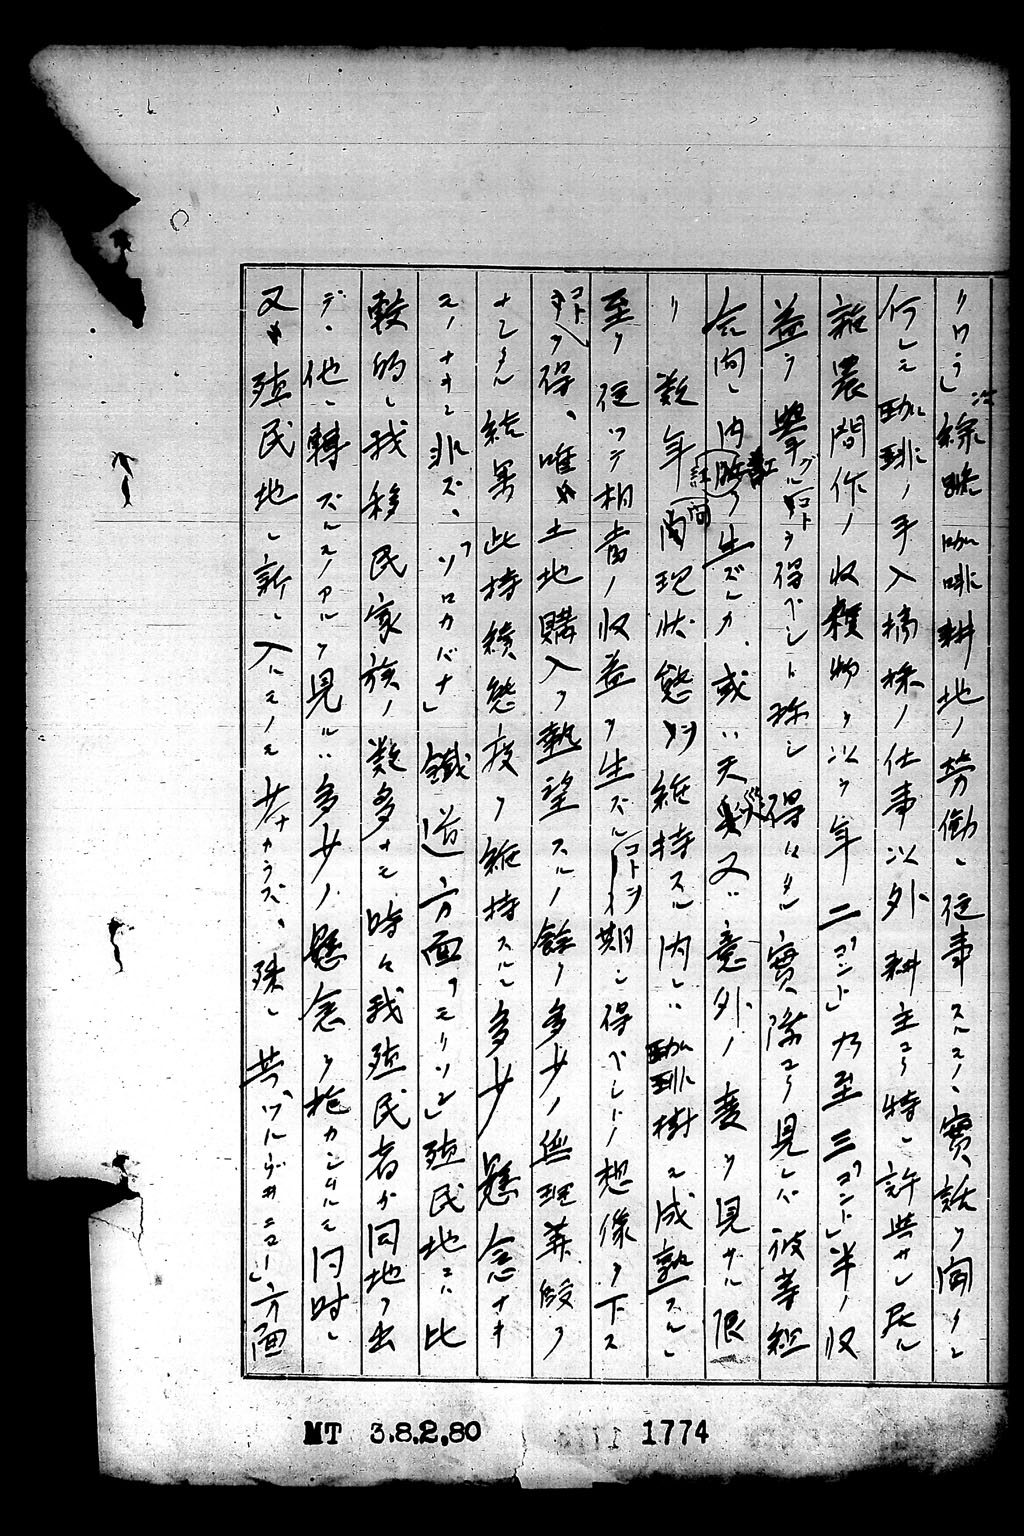 リロウ」線ニ沿ヘル珈琲耕地ノ労働ニ従事スルモノノ實話ヲ聞クニ
何レモ珈琲ノ手入摘採ノ仕事以外耕主ヨリ特ニ許與サレ居ル
諸農間作ノ収穫物ヲ以ツ年二「コント」乃至三「コント」半ノ収
益ヲ擧グルコトヲ得ベシト称シ得ルモ實際ヨリ見レバ彼等組
合間ニ内訌ヲ生ズルカ、或ハ天災又ハ意外ノ変ヲ見ザル限
リ数年間現状態ヲ維持スル内ニハ珈琲樹モ成熟スルニ
至リ従ツテ相當ノ収益ヲ生ズルコトヲ期シ得ベシトノ想像ヲ下ス
コトヲ得、唯土地購入ヲ熱望スルノ餘リ多少ノ無理算段ヲ
ナシタル結果此持續態度ヲ維持スルニ多少懸念ナキ
モノナキニ非ズ、「ソロカバナ」鐵道方面「モリソン」殖民地ニハ比
較的ニ我移民家族ノ数多キモ時々我殖民者ガ同地ヲ出
デ、他ニ轉ズルモノアルヲ見ルハ多少ノ懸念ヲ抱カシムルモ同時ニ
又殖民地ニ新ニ入ルモノモ尠ナカラズ、殊ニ其
方面
MT 3.8.2.80
1774